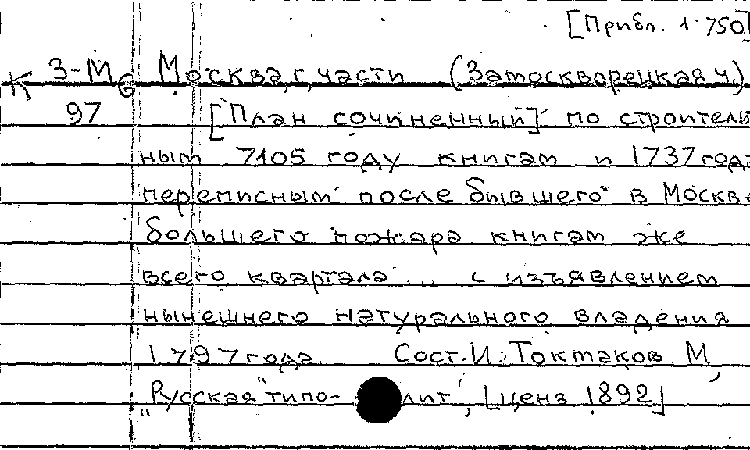 [Прибл. 1:750]
К 3-М6 Москва, г, части (Замоскворецкая ч)
97 ["План сочиненный] по строитель
ным 7105 году книгам и 1737 года
переписным после бывшего в Москве
большего пожара книгам же
всего квартала ... с изъявлением
нынешнего натурального владения
1797 года Сост. И. Токмаков М,
"Русская" типо-лит", [ценз 1892]